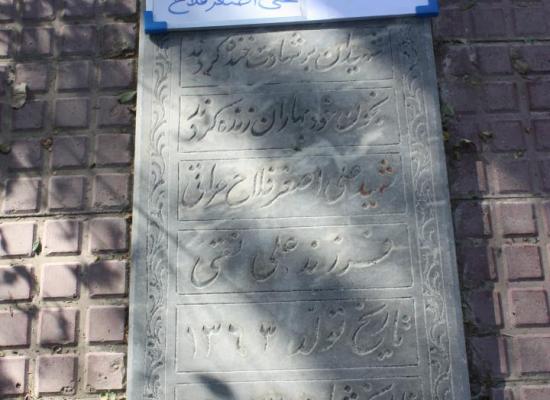 علی اصغر فلاح
شهیدان بر شهادت خنده کردند
بخون خود بهاران زنده کردند
شهید علی اصغر فلاح عراقی
فرزند علی نقی
تاریخ تولد ۱۳۶۳